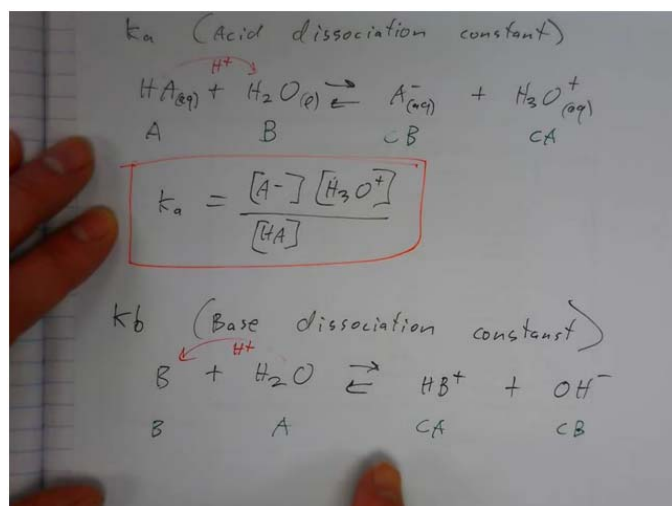 ka (Acid dissociation constant)
H+
HA(aq) + H₂O(l) ⇌ A⁻(aq) + H₃O⁺(aq)
A B CB CA
ka = [A-][H₃O⁺] / [HA]
kb (Base dissociation constanst)
H+
B + H₂O ⇌ HB⁺ + OH⁻
B A CA CB